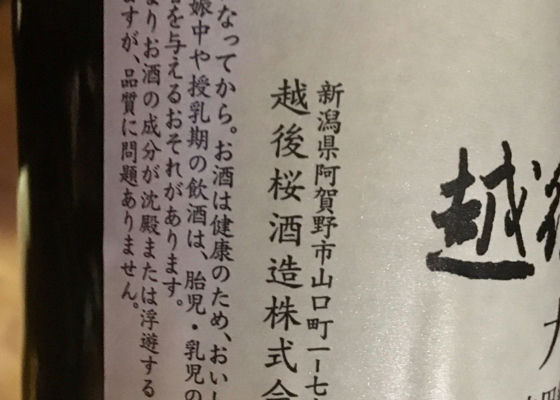 越後
新潟県阿賀野市山口町一ー七
越後桜酒造株式会
なってから。お酒は健康のため、おいし
娠中や授乳期の飲酒は、胎児・乳児の
を与えるおそれがあります。
よりお酒の成分が沈殿または浮遊する
ますが、品質に問題ありません。